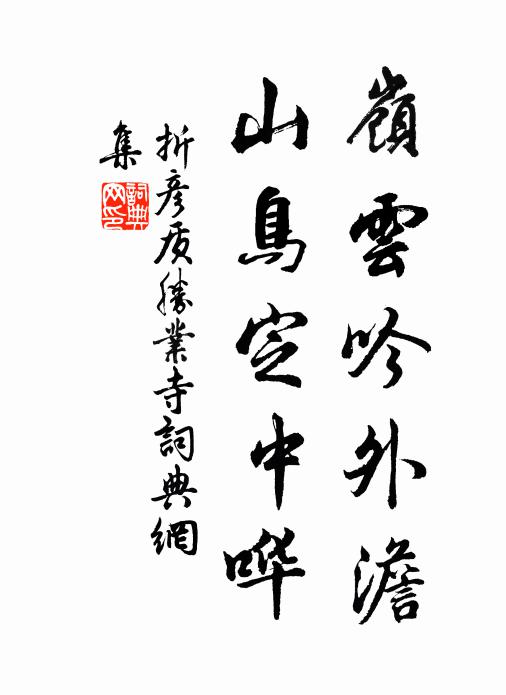 嶺雲吟外澹
山鳥定中哗
折彥质勝業寺詞典網
集
詞典
网印